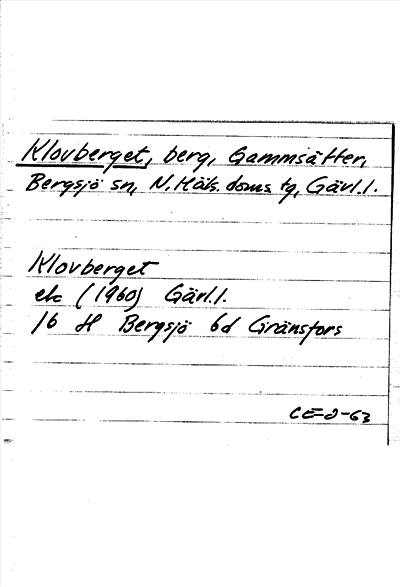 Klovberget, berg, Gammsätter,
Bergsjö sn, N. Häls. doms. tg, Gävl. l.
Klovberget
ek (1960) Gävl. l.
16 H Bergsjö 6d Gränsfors
CE-0-63